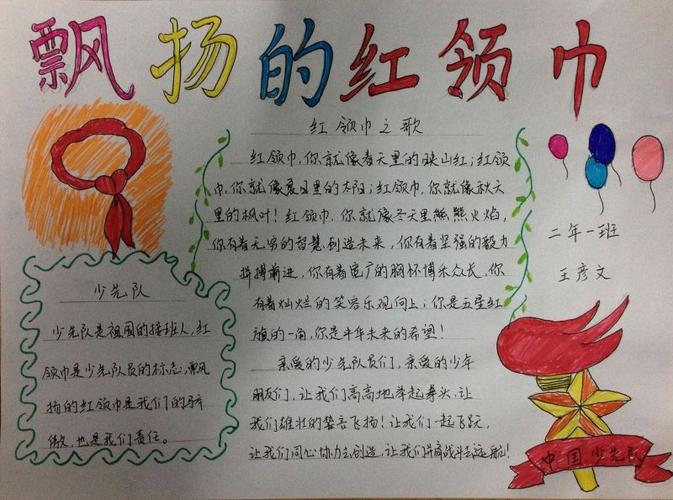 飘扬的红领巾
红领巾之歌
红领巾,你就像春天里的映山红;红领
巾,你就像夏日里的太阳;红领巾,你就像秋天
里的枫叶!红领巾,你就像冬天里熊熊火焰,
你有着无穷的智慧创造未来,你有着坚强的毅力
拼搏前进,你有着宽广的胸怀博采众长,你
有着灿烂的笑容乐观向上;你是五星红
旗的一角,你是中华未来的希望!
亲爱的少先队员们,亲爱的少年
朋友们,让我们高高地举起拳头,让
我们雄壮的誓言飞扬!让我们一起飞跃,
让我们同心协力去创造,让我们并肩战斗去远航!
少先队
少先队是祖国的接班人,红
领巾是少先队员的标志,飘
扬的红领巾是我们的骄
傲,也是我们责任。
二年一班
王彦文
中国少先队